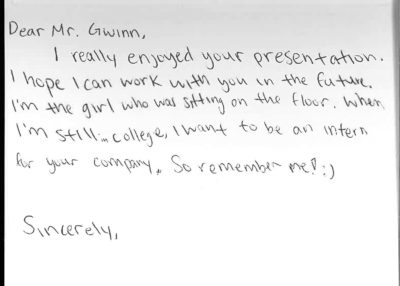 Dear Mr. Gwinn,
I really enjoyed your presentation.
I hope I can work with you in the future.
I'm the girl who was sitting on the floor. When
I'm still in college, I want to be an intern
for your company. So remember me! :)
Sincerely,